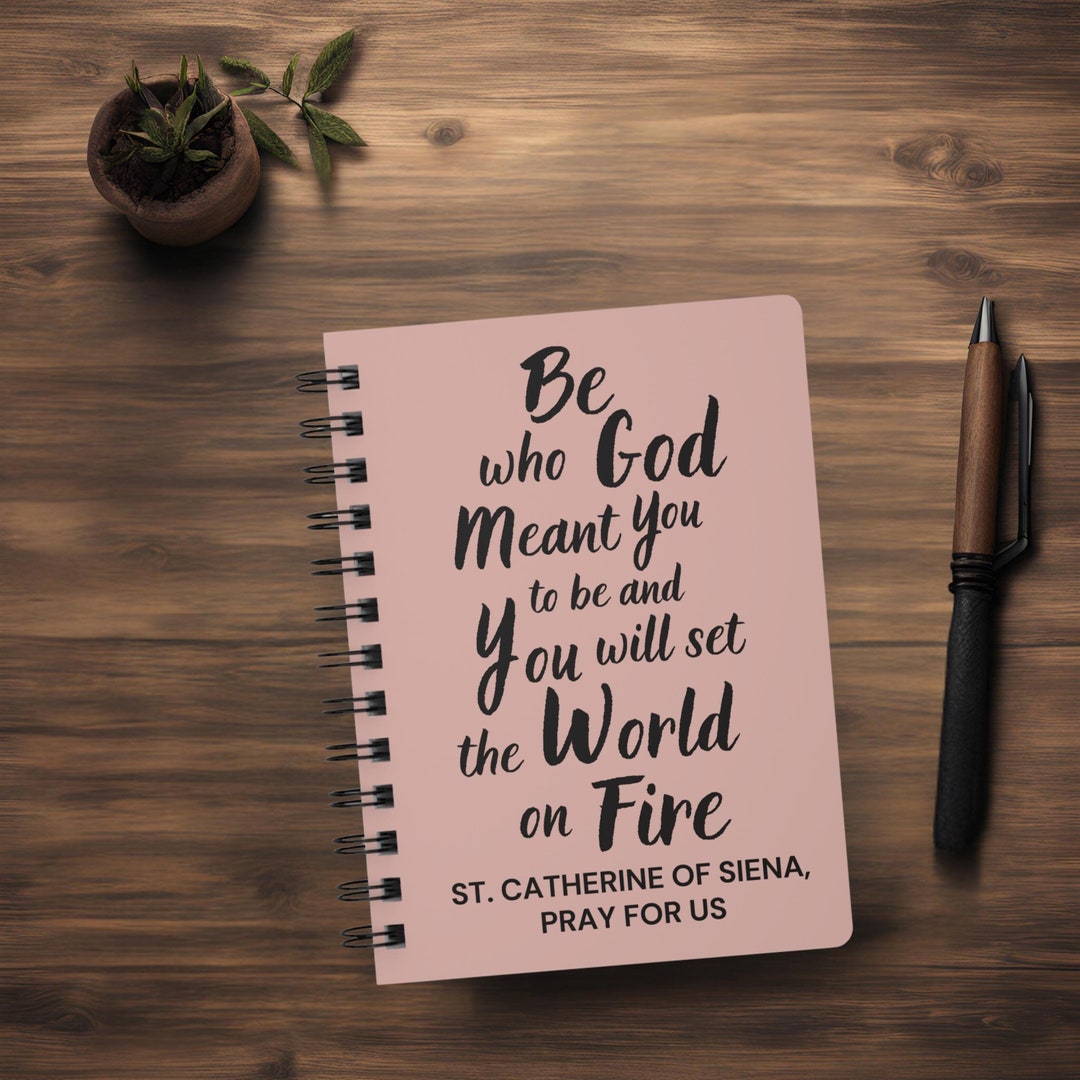 Be
who God
Meant You
to be and
You will set
the World
on Fire
ST. CATHERINE OF SIENA,
PRAY FOR US